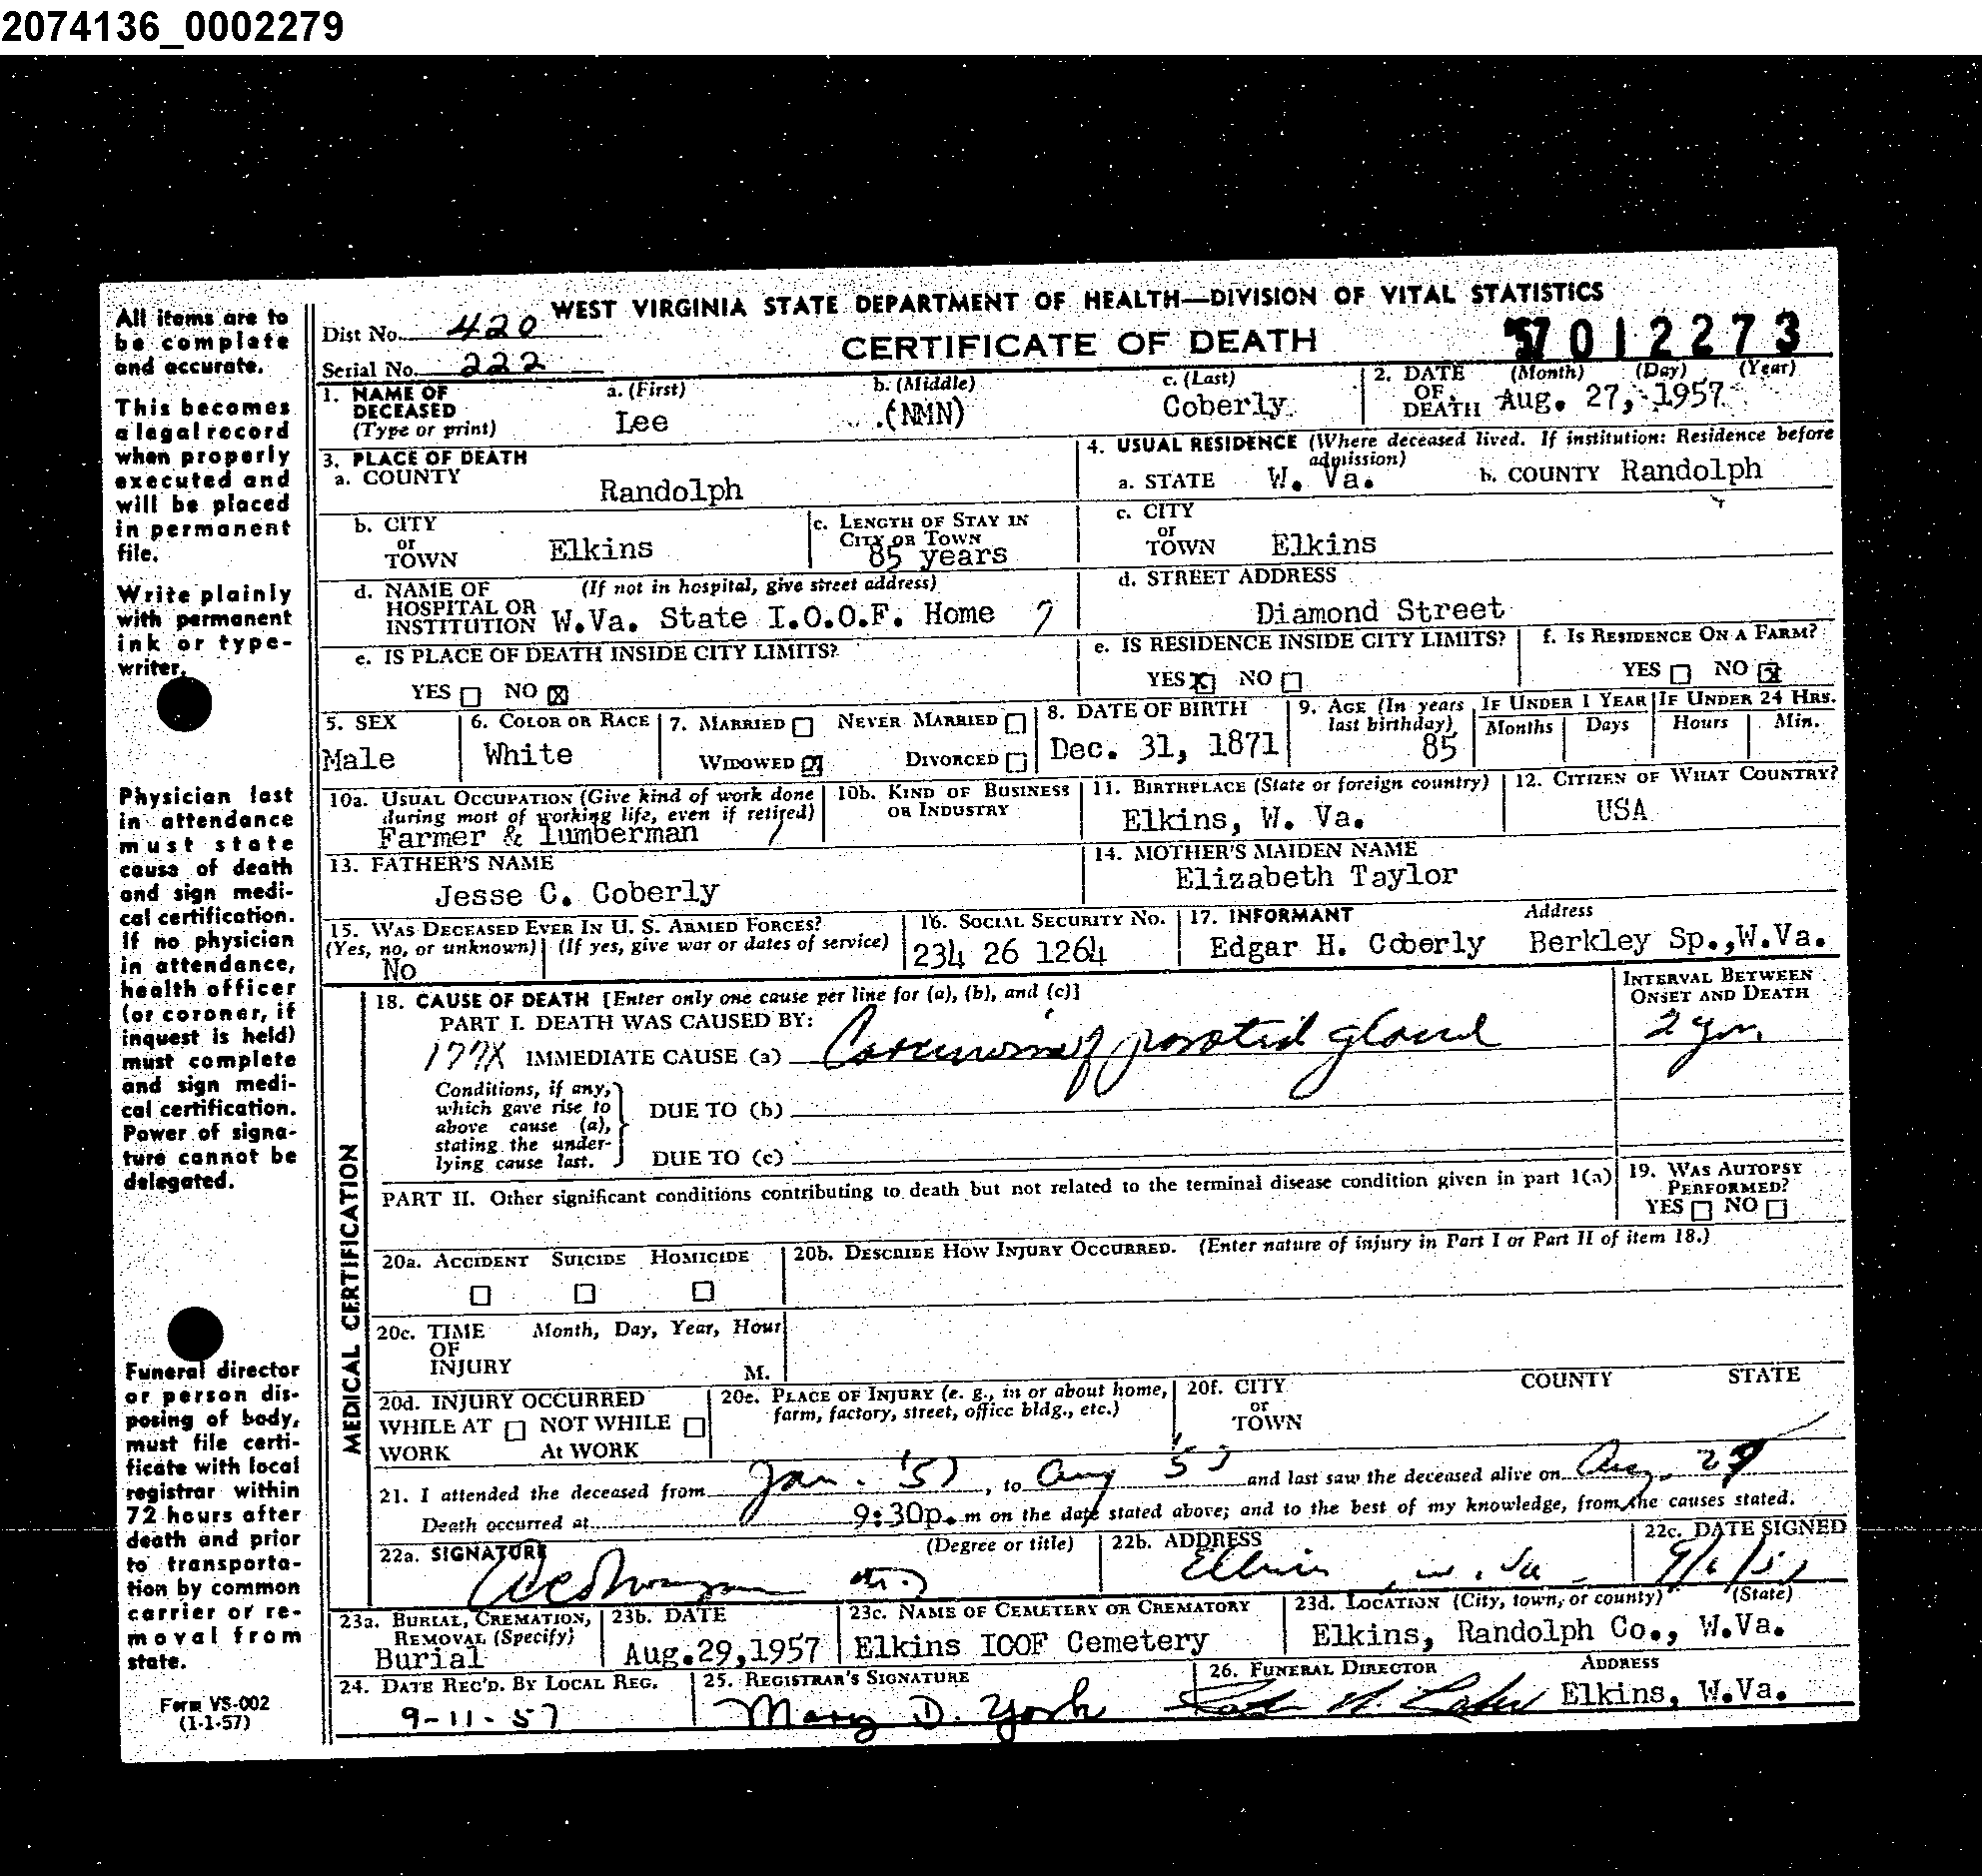 2074136_0002279
All items are to
be complete
and accurate.
This becomes
a legal record
when properly
executed and
will be placed
in permanent
file.
Write plainly
with permanent
ink or type-
writer.
Physician last
in attendance
must state
cause of death
and sign medi-
cal certification.
If no physician
in attendance,
health officer
(or coroner, if
inquest is held)
must complete
and sign medi-
cal certification.
Power of signa-
ture cannot be
delegated.
Funeral director
or person dis-
posing of body,
must file certi-
ficate with local
registrar within
72 hours after
death and prior
to transporta-
tion by common
carrier or re-
moval from
state.
Form VS-002
(1-1-57)
WEST VIRGINIA STATE DEPARTMENT OF HEALTH—DIVISION OF VITAL STATISTICS
Dist No. 420
CERTIFICATE OF DEATH
57 012273
Serial No. 222
1. NAME OF DECEASED (Type or print) a. (First) b. (Middle) c. (Last)
Lee (NMN) Coberly
2. DATE OF DEATH (Month) (Day) (Year)
Aug. 27, 1957
3. PLACE OF DEATH
a. COUNTY Randolph
4. USUAL RESIDENCE (Where deceased lived. If institution: Residence before admission)
a. STATE W. Va. b. COUNTY Randolph
b. CITY or TOWN Elkins
c. LENGTH OF STAY IN CITY OR TOWN
85 years
c. CITY or TOWN Elkins
d. NAME OF HOSPITAL OR INSTITUTION (If not in hospital, give street address)
W.Va. State I.O.O.F. Home 7
d. STREET ADDRESS
Diamond Street
e. IS PLACE OF DEATH INSIDE CITY LIMITS?
YES NO X
e. IS RESIDENCE INSIDE CITY LIMITS?
YES X NO
f. IS RESIDENCE ON A FARM?
YES NO X
5. SEX
Male
6. COLOR OR RACE
White
7. MARRIED NEVER MARRIED
WIDOWED X DIVORCED
8. DATE OF BIRTH
Dec. 31, 1871
9. AGE (In years last birthday)
85
IF UNDER 1 YEAR
Months Days
IF UNDER 24 HRS.
Hours Min.
10a. USUAL OCCUPATION (Give kind of work done during most of working life, even if retired)
Farmer & lumberman
10b. KIND OF BUSINESS OR INDUSTRY
11. BIRTHPLACE (State or foreign country)
Elkins, W. Va.
12. CITIZEN OF WHAT COUNTRY?
USA
13. FATHER'S NAME
Jesse C. Coberly
14. MOTHER'S MAIDEN NAME
Elizabeth Taylor
15. WAS DECEASED EVER IN U. S. ARMED FORCES?
(Yes, no, or unknown) (If yes, give war or dates of service)
No
16. SOCIAL SECURITY NO.
234 26 1264
17. INFORMANT Address
Edgar H. Coberly Berkley Sp.,W.Va.
MEDICAL CERTIFICATION
18. CAUSE OF DEATH [Enter only one cause per line for (a), (b), and (c)]
INTERVAL BETWEEN ONSET AND DEATH
PART I. DEATH WAS CAUSED BY:
177X IMMEDIATE CAUSE (a) Carcinoma of prostrid gland 2 yrs.
Conditions, if any, which gave rise to above cause (a), stating the under-lying cause last.
DUE TO (b)
DUE TO (c)
PART II. Other significant conditions contributing to death but not related to the terminal disease condition given in part 1(a)
19. WAS AUTOPSY PERFORMED?
YES NO
20a. ACCIDENT SUICIDE HOMICIDE
20b. DESCRIBE HOW INJURY OCCURRED. (Enter nature of injury in Part I or Part II of item 18.)
20c. TIME OF INJURY Month, Day, Year, Hour
M.
20d. INJURY OCCURRED
WHILE AT WORK NOT WHILE At WORK
20e. PLACE OF INJURY (e. g., in or about home, farm, factory, street, office bldg., etc.)
20f. CITY or TOWN COUNTY STATE
21. I attended the deceased from Jan. '57, to Aug '57 and last saw the deceased alive on Aug. 27
Death occurred at 9:30p.m on the date stated above; and to the best of my knowledge, from the causes stated.
22a. SIGNATURE (Degree or title)
22b. ADDRESS
Elkins, W. Va.
22c. DATE SIGNED
9/6/57
23a. BURIAL, CREMATION, REMOVAL (Specify)
Burial
23b. DATE
Aug.29,1957
23c. NAME OF CEMETERY OR CREMATORY
Elkins IOOF Cemetery
23d. LOCATION (City, town, or county) (State)
Elkins, Randolph Co., W.Va.
24. DATE REC'D. BY LOCAL REG.
9-11-57
25. REGISTRAR'S SIGNATURE
Mary D. York
26. FUNERAL DIRECTOR ADDRESS
Elkins, W.Va.